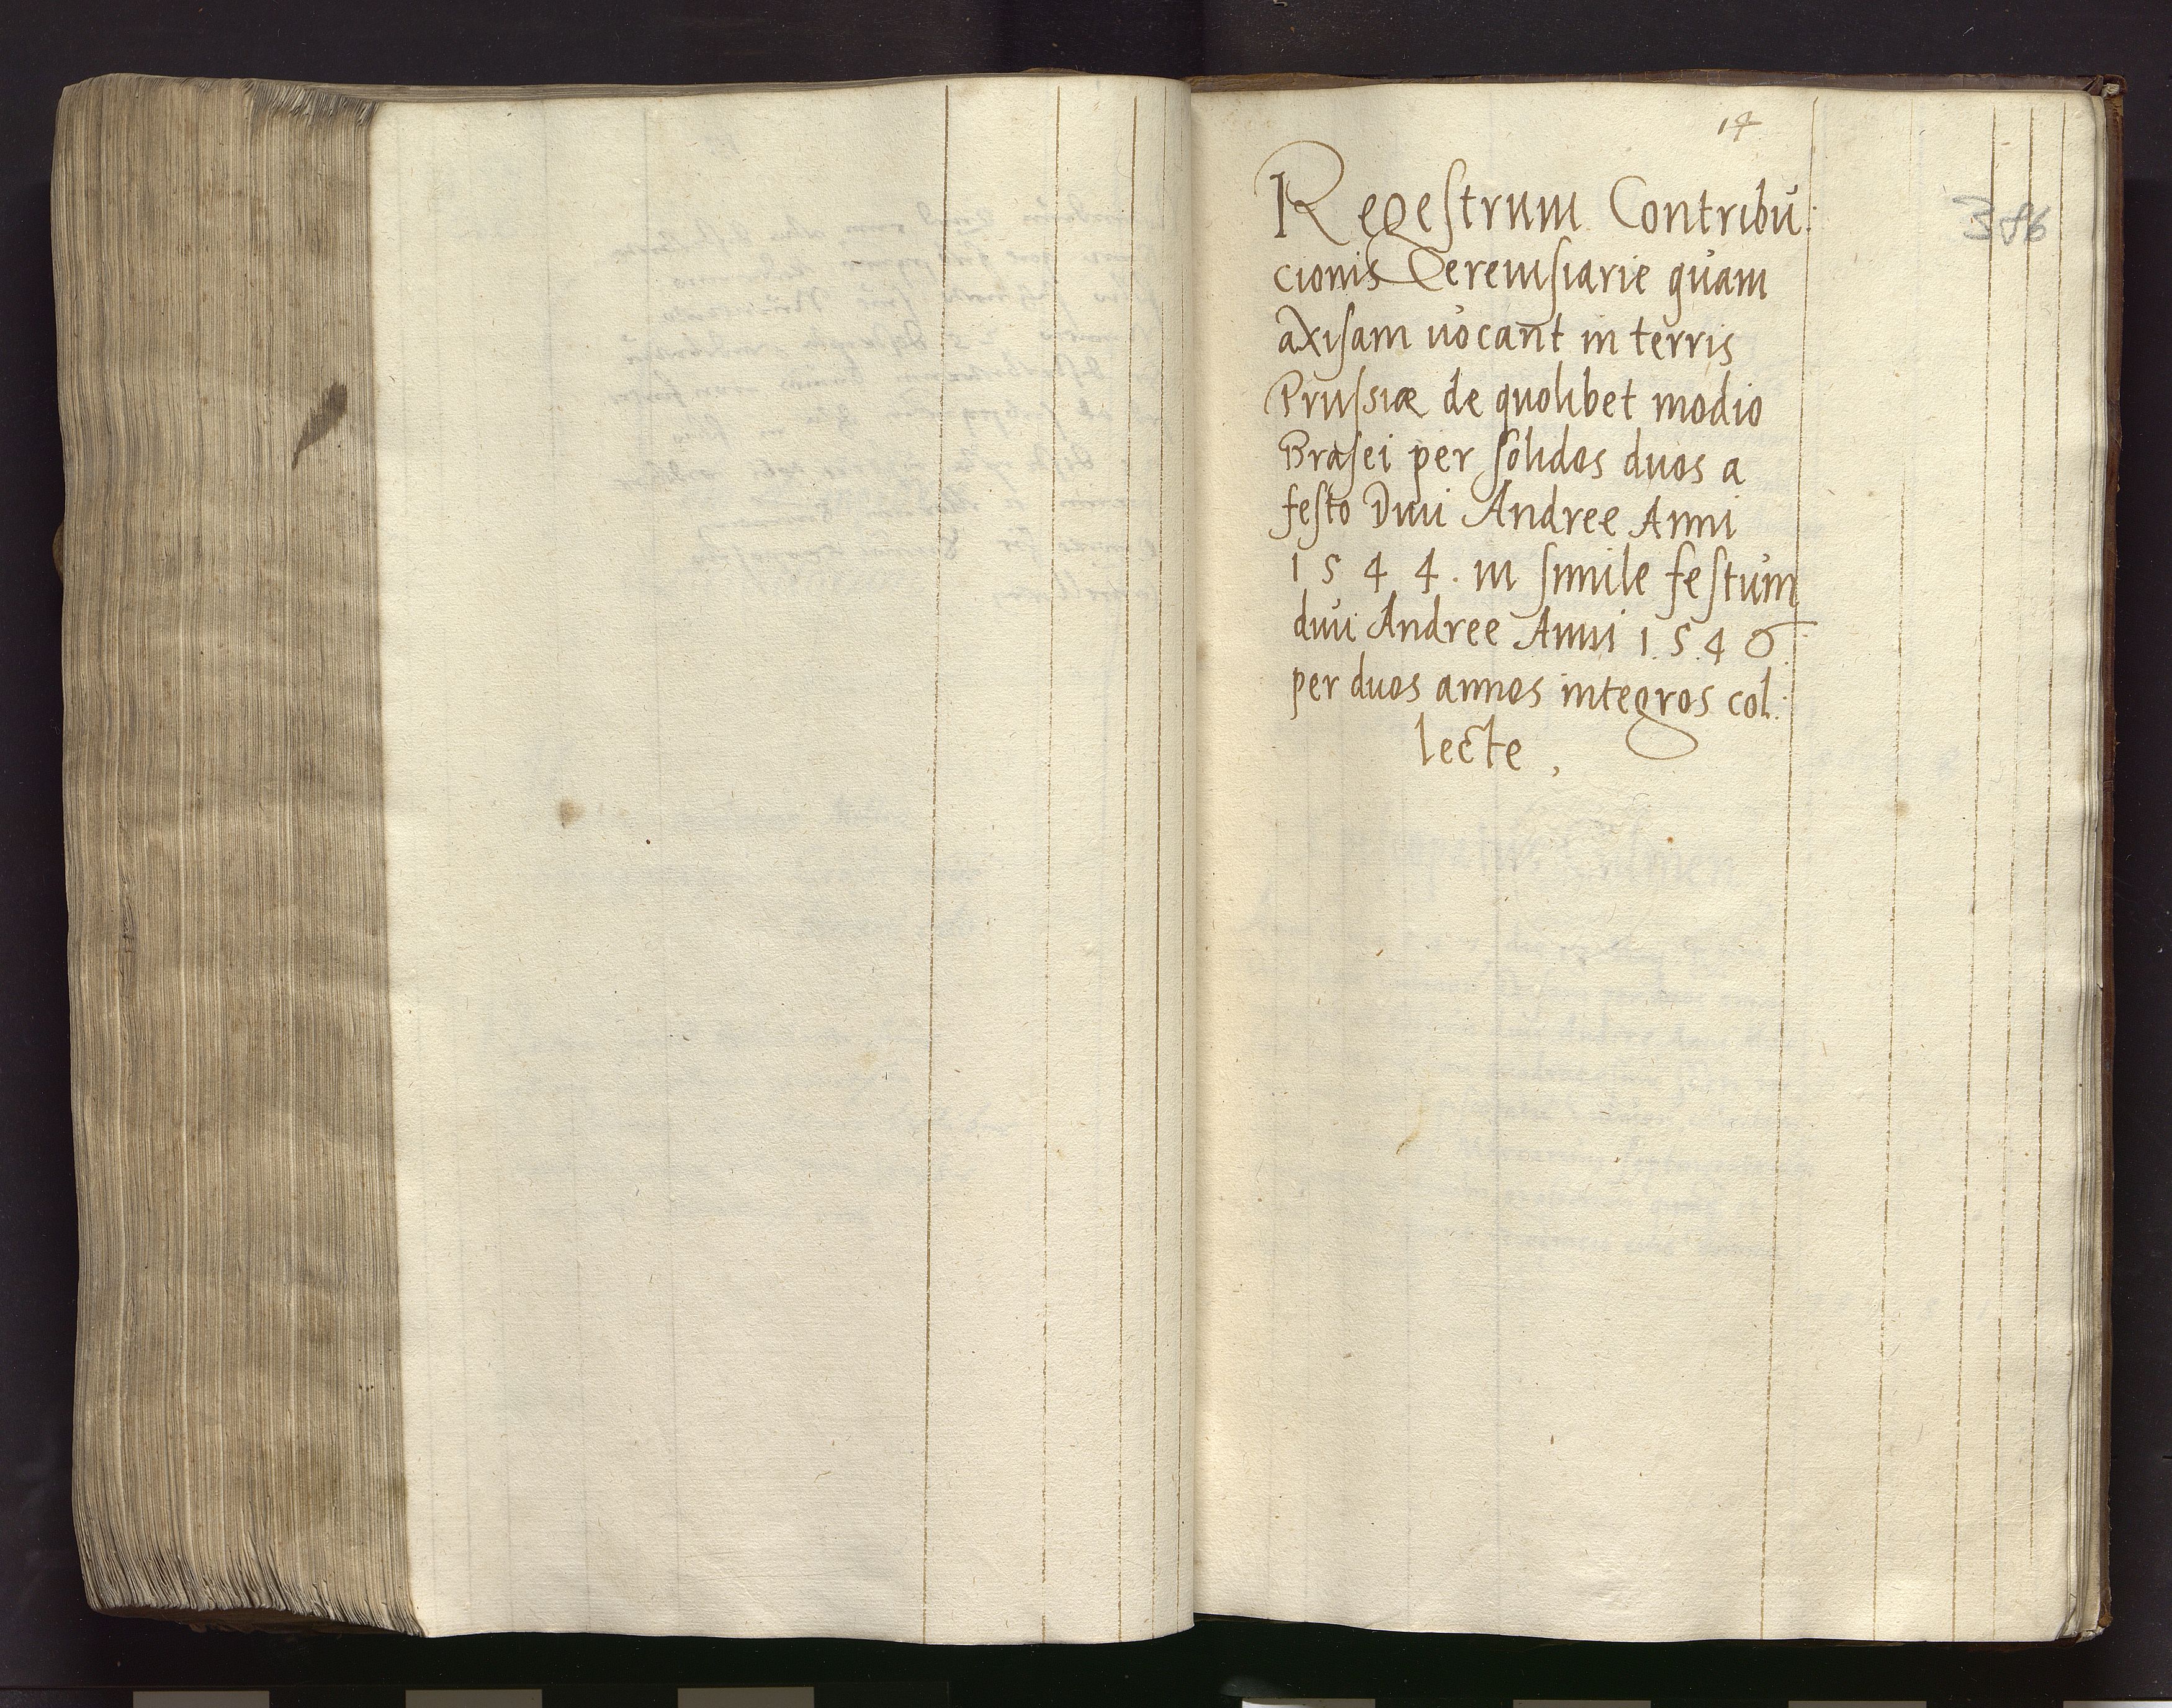 17
386
Regestrum Contribu:
cionis Cerevisiarie quam
axisam vocant in terris
Prussiæ de quolibet modio
Brasei per solidos duos a
festo Divi Andree Anni
1544. in simile festum
divi Andree Anni 1.5.4 6.
per duos annos integros col:
lecte,